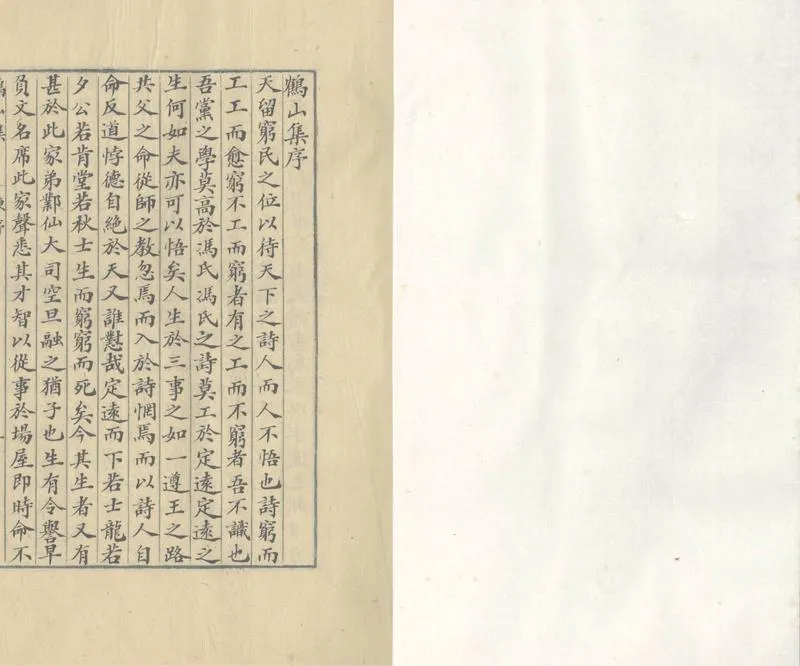 鶴山集序
天留窮民之位以待天下之詩人而人不悟也詩窮而
工工而愈窮不工而窮者有之工而不窮者吾不識也
吾黨之學莫高於馮氏馮氏之詩莫工於定遠定遠之
生何如夫亦可以悟矣人生於三事之如一遵王之路
共父之命從師之教忽焉而入於詩惘焉而以詩人自
命反道悖德自絶於天又誰懟哉定遠而下若士龍若
夕公若肯堂若秋士生而窮窮而死矣今其生者又有
甚於此家弟鄴仙大司空旦融之猶子也生有令譽早
負文名席此家聲悉其才智以從事於場屋即時命不